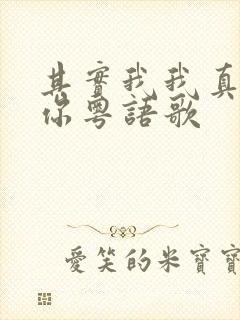 其實我我真
你粵語歌
愛笑的米寶寶